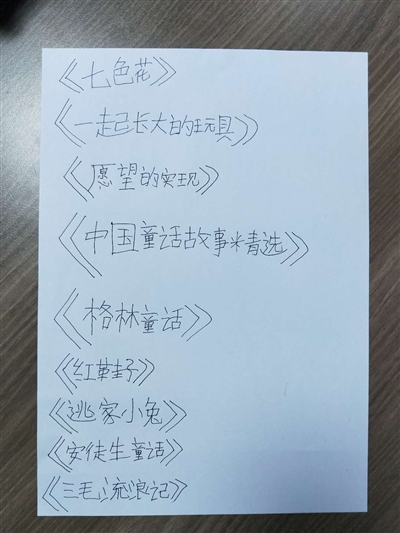 《七色花》
《一起长大的玩具》
《愿望的实现》
《中国童话故事精选》
《格林童话》
《红鞋子》
《逃家小兔》
《安徒生童话》
《三毛流浪记》